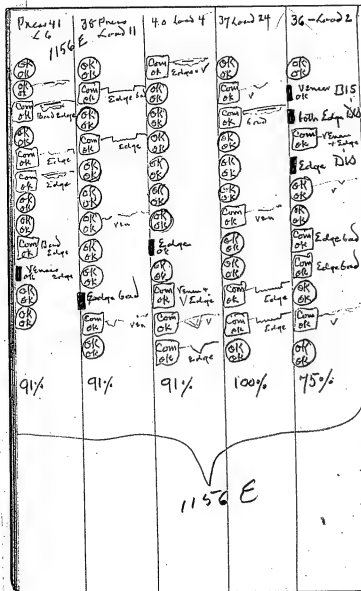 Press 41
L 6
1156 E
OK OK
OK OK
Com OK Bad Edge
OK OK
Com OK Edge
Com OK Edge
OK OK
OK OK
Com OK Bad Edge
Veneer OK Edge
OK OK
OK OK
91%
38 Press
Load 11
OK OK
Com OK Edge Bad
OK OK
Com OK Edge
OK OK
OK OK
OK OK
OK OK
Ven
OK OK
OK OK
Edge bad
Com OK Ven
OK OK
91%
40 Load 4
Com OK Edge + V
OK OK
OK OK
OK OK
OK OK
OK OK
OK OK
Edge OK
OK OK
Com OK Veneer + V Edge
Com OK V
Com OK Edge
91%
37 Load 24
OK OK
Com OK V
Com OK bad
OK OK
OK OK
OK OK
Com OK Ven
OK OK
OK OK
Com OK Edge
Com OK Edge
OK OK
100%
36 - Load 2
OK OK
Veneer OK
both Edge
Com OK Veneer + Edge
Edge
Com OK V
OK OK
Com OK Edge bad
Com OK Edge bad
OK OK
Com OK V
OK OK
75%
1156 E